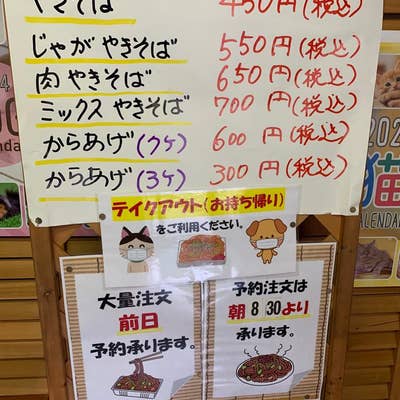 やきそば 450円(税込)
じゃが やきそば 550円(税込)
肉 やきそば 650円(税込)
ミックス やきそば 700円(税込)
からあげ(7ケ) 600円(税込)
からあげ(3ケ) 300円(税込)
テイクアウト(お持ち帰り)
をご利用ください。
大量注文
前日
予約承ります。
予約注文は
朝8:30より
承ります。
202
猫
CALENDAR